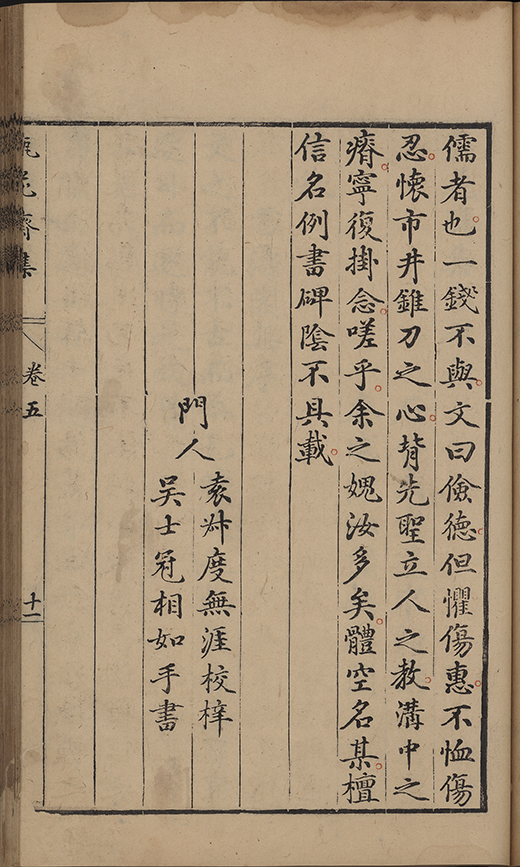 儒者也一錢不與文曰儉德但懼傷惠不恤傷
忍懷市井錐刀之心背先聖立人之教溝中之
瘠寧復掛念嗟乎余之媿汝多矣體空名某檀
信名例書碑陰不具載
門人
袁叔度無涯校梓
吳士冠相如手書
瓶花齋集
卷五
十一